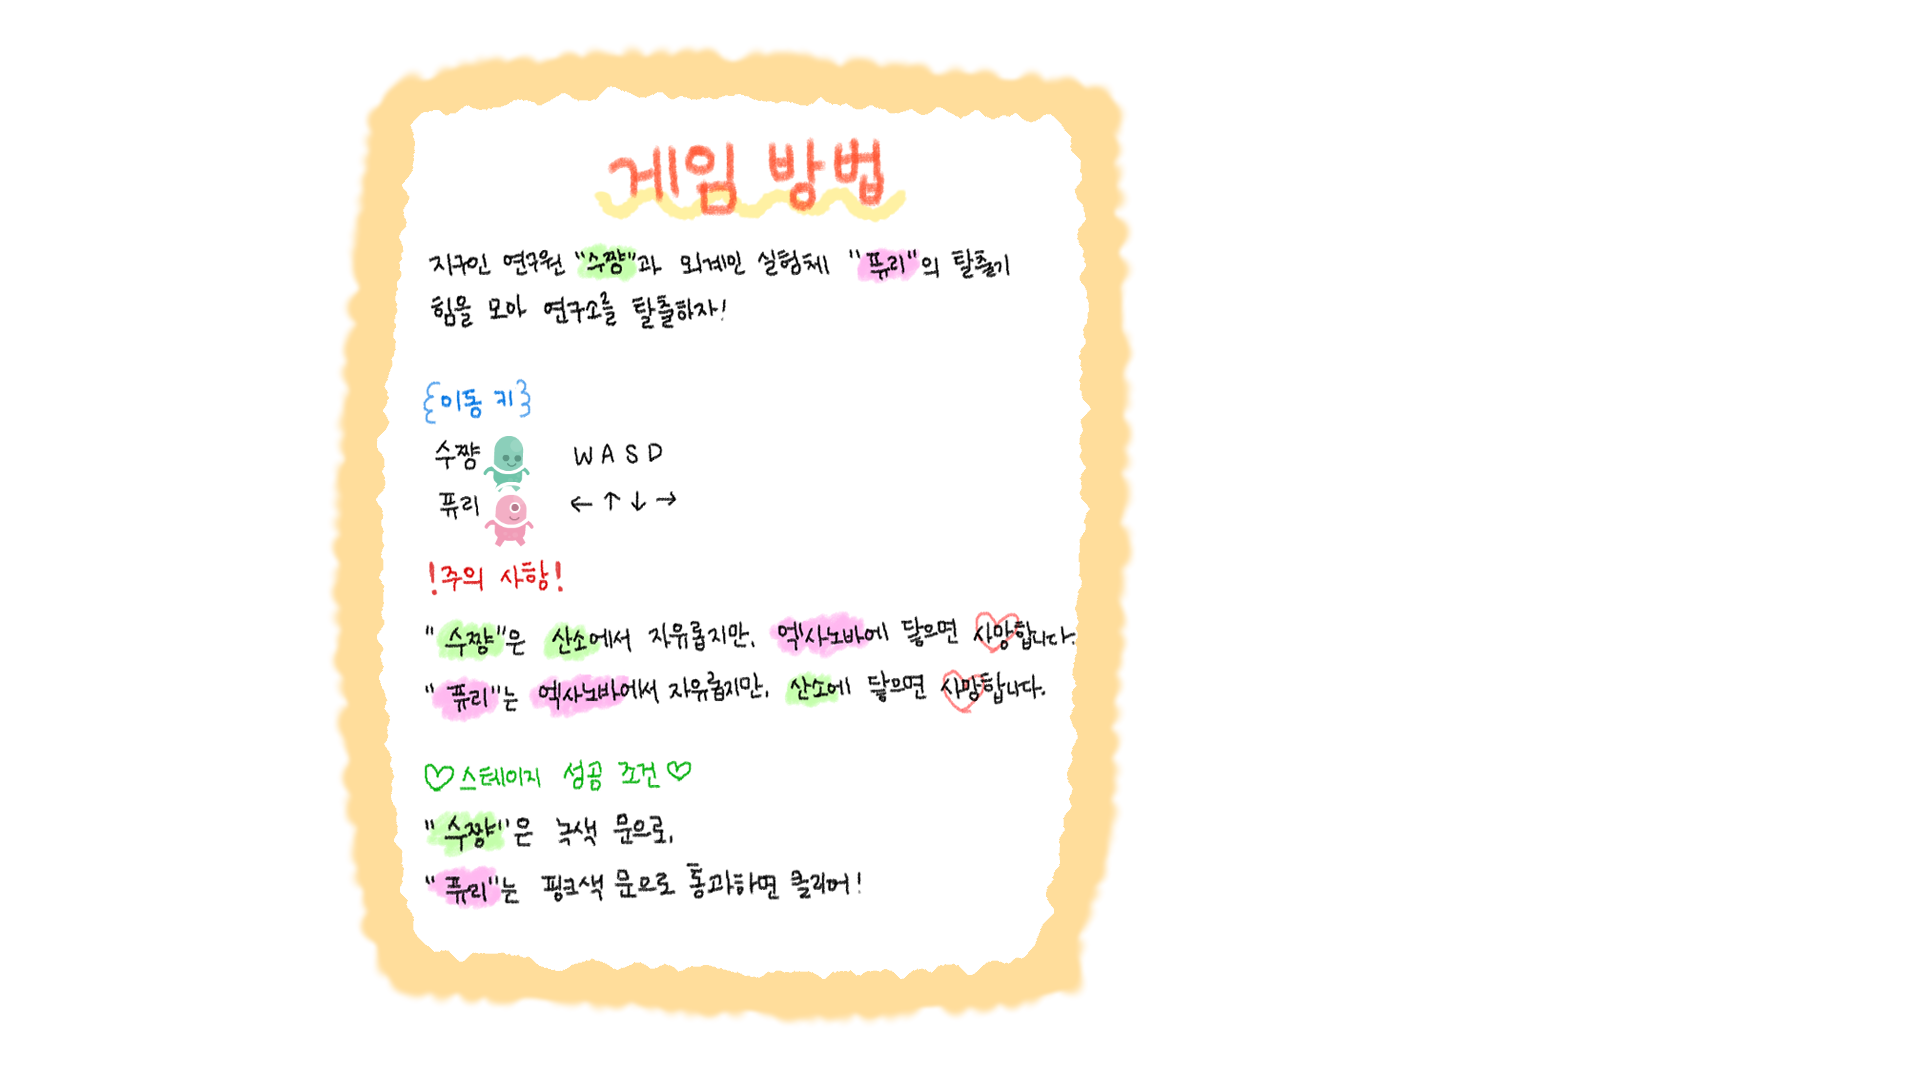 게임 방법
지구인 연구원 "수쨩"과 외계인 실험체 "퓨리"의 탈출기
힘을 모아 연구소를 탈출하자!
{이동 키}
수쨩 W A S D
퓨리 ← ↑ ↓ →
!주의 사항!
"수쨩"은 산소에서 자유롭지만, 엑사노바에 닿으면 사망합니다.
"퓨리"는 엑사노바에서 자유롭지만, 산소에 닿으면 사망합니다.
♡스테이지 성공 조건♡
"수쨩"은 녹색 문으로,
"퓨리"는 핑크색 문으로 통과하면 클리어!